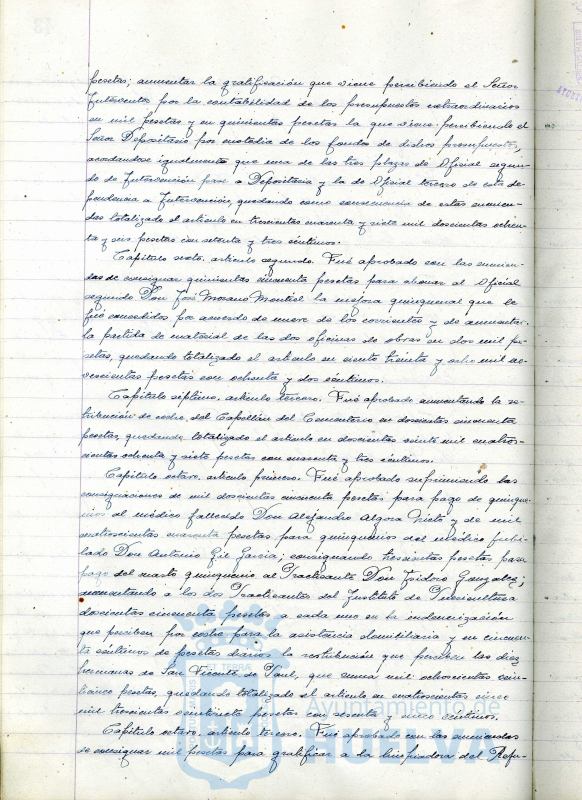 pesetas; aumentar la gratificación que viene percibiendo el Señor
Interventor por la contabilidad de los presupuestos extraordinarios
en mil pesetas y en quinientas pesetas la que viene percibiendo el
Señor Depositario por custodia de los fondos de dichos presupuestos,
acordandose igualmente que una de las tres plazas de Oficial segun-
do de Intervención pase a Depositaria y la de Oficial tercero de esta de-
pendencia a Intervención, quedando como consecuencia de estas enmien-
das totalizado el artículo en trescientas cuarenta y siete mil doscientas ochen-
ta y seis pesetas con setenta y tres céntimos.
Capítulo sexto. artículo segundo. Fué aprobado con las enmien-
das de consignar quinientas cincuenta pesetas para abonar al Oficial
segundo Don José Morano Montiel la mejora quinquenal que le
fué concedida por acuerdo de nueve de los corrientes y de aumentar
la partida de material de las dos oficinas de obras en dos mil pe-
setas, quedando totalizado el artículo en ciento treinta y ocho mil no-
vecientas pesetas con ochenta y dos céntimos.
Capítulo séptimo, artículo tercero. Fué aprobado aumentando la re-
tribución de coche del Capellán del Cementerio en doscientas cincuenta
pesetas, quedando totalizado el artículo en doscientas veinte mil cuatro-
cientas ochenta y siete pesetas con cuarenta y tres céntimos.
Capítulo octavo, artículo primero. Fué aprobado suprimiendo las
consignaciones de mil doscientas cincuenta pesetas para pago de quinque-
nios al médico fallecido Don Alejandro Algora Nieto y de mil
cuatrocientas cuarenta pesetas para quinquenios del médico jubi-
lado Don Antonio Gil García; consignando trescientas pesetas para
pago del cuarto quinquenio al Practicante Don Isidoro Gonzalez;
aumentando a los dos Practicantes del Instituto de Puericultura
doscientas cincuenta pesetas a cada uno en la indemnización
que perciben por coche para la asistencia domiciliaria y en cincuen-
ta céntimos de pesetas diarias la retribución que perciben las diez
hermanas de San Vicente de Paul, que suma mil ochocientas cin-
cuenta pesetas, quedando totalizado el artículo en cuatrocientas cinco
mil trescientas veintisiete pesetas con sesenta y cinco céntimos.
Capítulo octavo. artículo tercero. Fué aprobado con las enmiendas
de consignar mil pesetas para gratificar a la limpiadora del Refu-
Ayuntamiento de